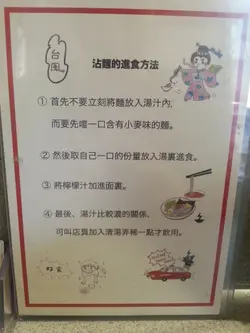 台風
沾麵的進食方法
① 首先不要立刻將麵放入湯汁內,
而要先嚐一口含有小麥味的麵。
② 然後取自己一口的份量放入湯裏進食。
③ 將檸檬汁加進面裏。
④ 最後、湯汁比較濃的關係、
可叫店員加入清湯弄稀一點才飲用。